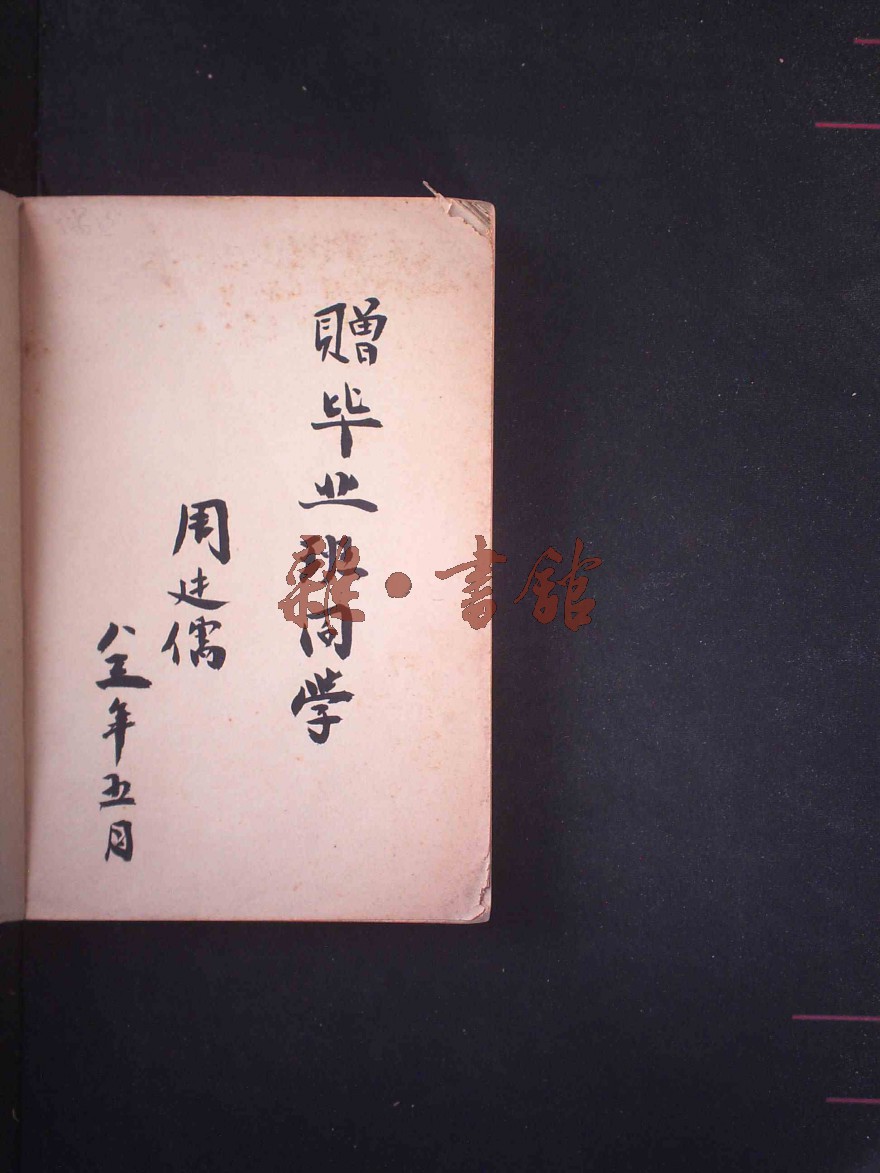 贈毕业班同学
周廷儒
八三年五月
雜·書館